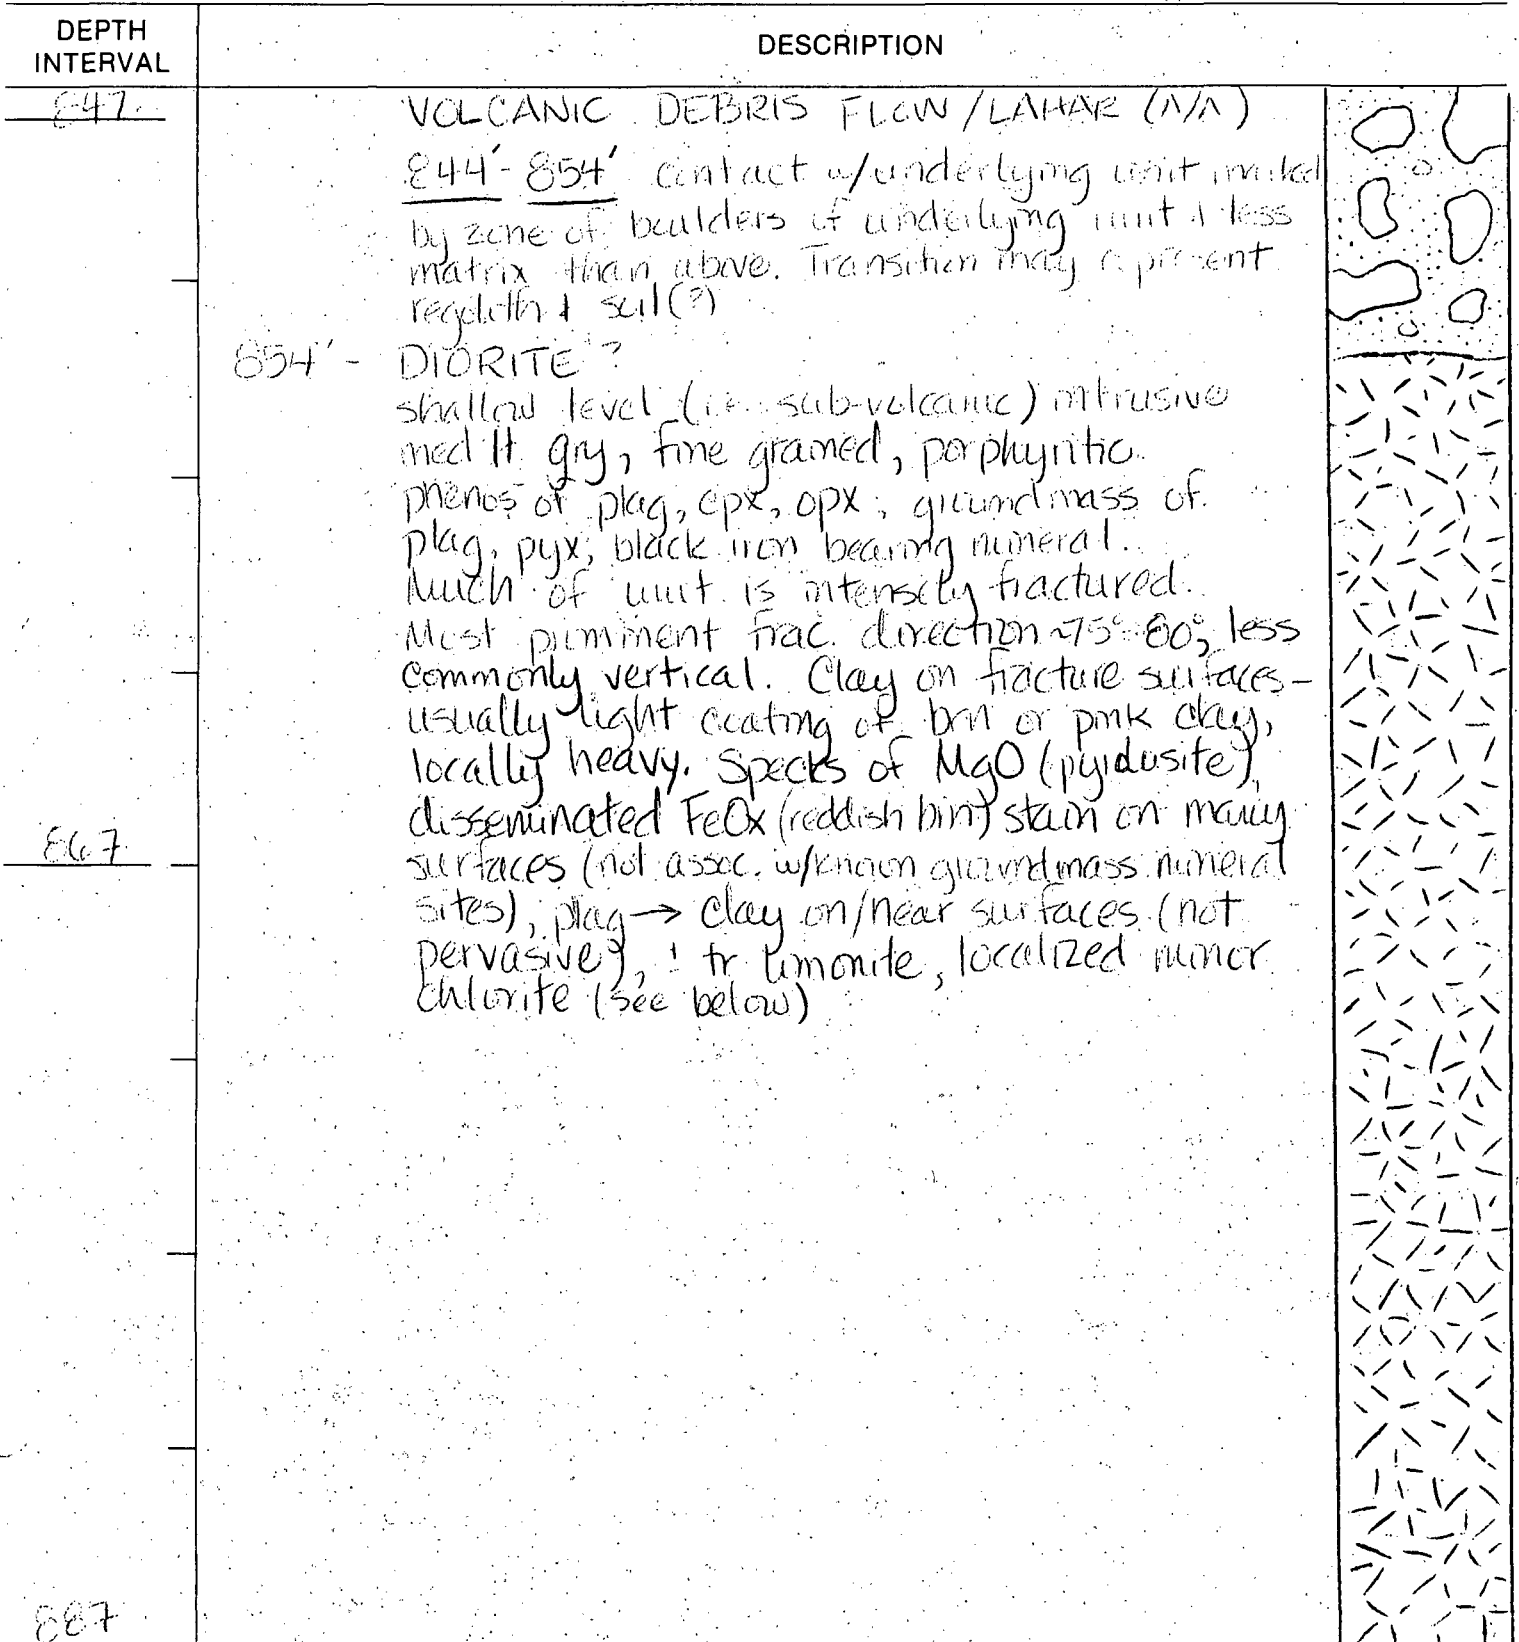 DEPTH INTERVAL
DESCRIPTION
847
VOLCANIC DEBRIS FLOW/LAHAR (A/A)
844'-854' contact w/underlying unit marked
by zone of boulders of underlying unit & less
matrix than above. Transition may represent
regolith & soil(?)
854'- DIORITE ?
shallow level (i.e. sub-volcanic) intrusive
med lt gry, fine grained, porphyritic
phenos of plag, cpx, opx; groundmass of
plag, pyx, black iron bearing mineral.
Much of unit is intensely fractured.
Most prominent frac. direction ~75°-80°, less
commonly vertical. Clay on fracture surfaces-
usually light coating of brn or pink clay,
locally heavy. Specks of MgO (pyrolusite),
disseminated FeOx (reddish brn) stain on many
867
surfaces (not assoc. w/known groundmass mineral
sites), plag → clay on/near surfaces (not
pervasive), ± tr limonite, localized minor
chlorite (see below)
887